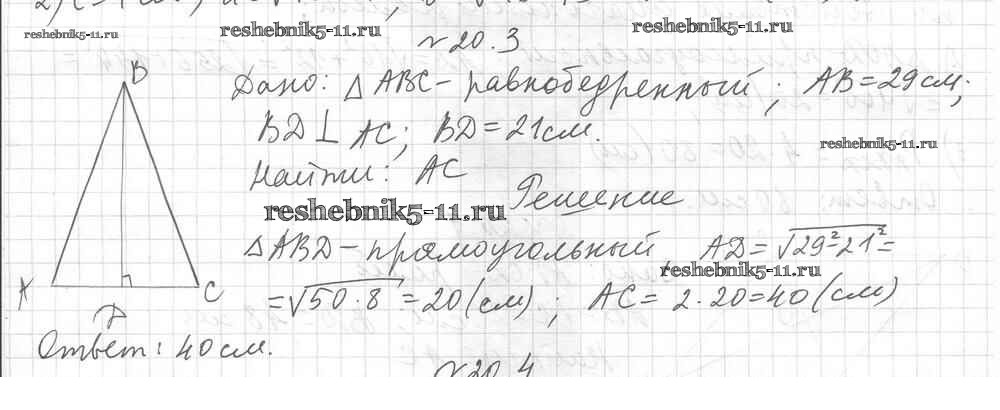 reshebnik5-11.ru reshebnik5-11.ru reshebnik5-11.ru
№20.3
B
Дано: △ ABC - равнобедренный; AB = 29 см;
BD ⊥ AC; BD = 21 см.
reshebnik5-11.ru
Найти: AC
Решение
reshebnik5-11.ru
△ ABD - прямоугольный, AD = √29²-21² =
reshebnik5-11.ru
A C
= √50·8 = 20 (см); AC = 2·20 = 40 (см)
D
Ответ: 40 см.
№20.4